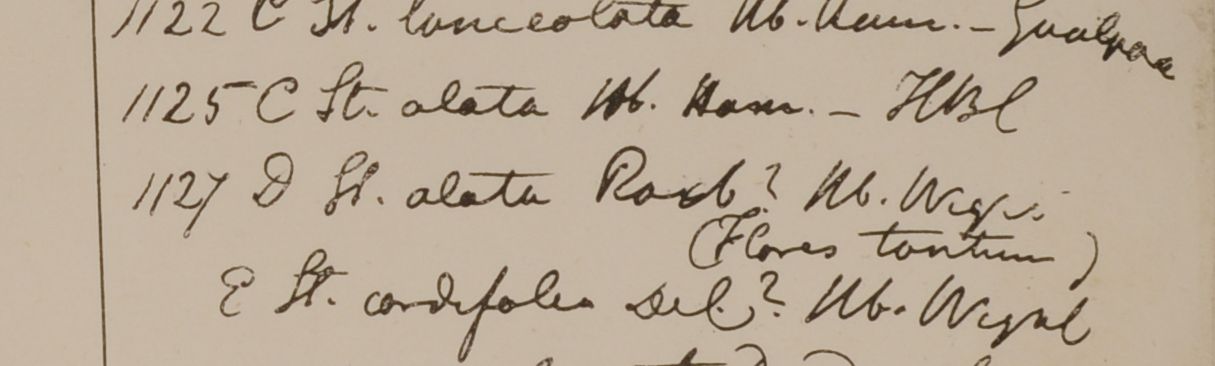 1122 C St. lanceolata Hb. Ham. – Gualpara
1125 C St. alata Hb. Ham. – HBC
1127 D St. alata Roxb? Hb. Wight
(Flores tantum)
E St. cordifolia Del.? Hb. Wight